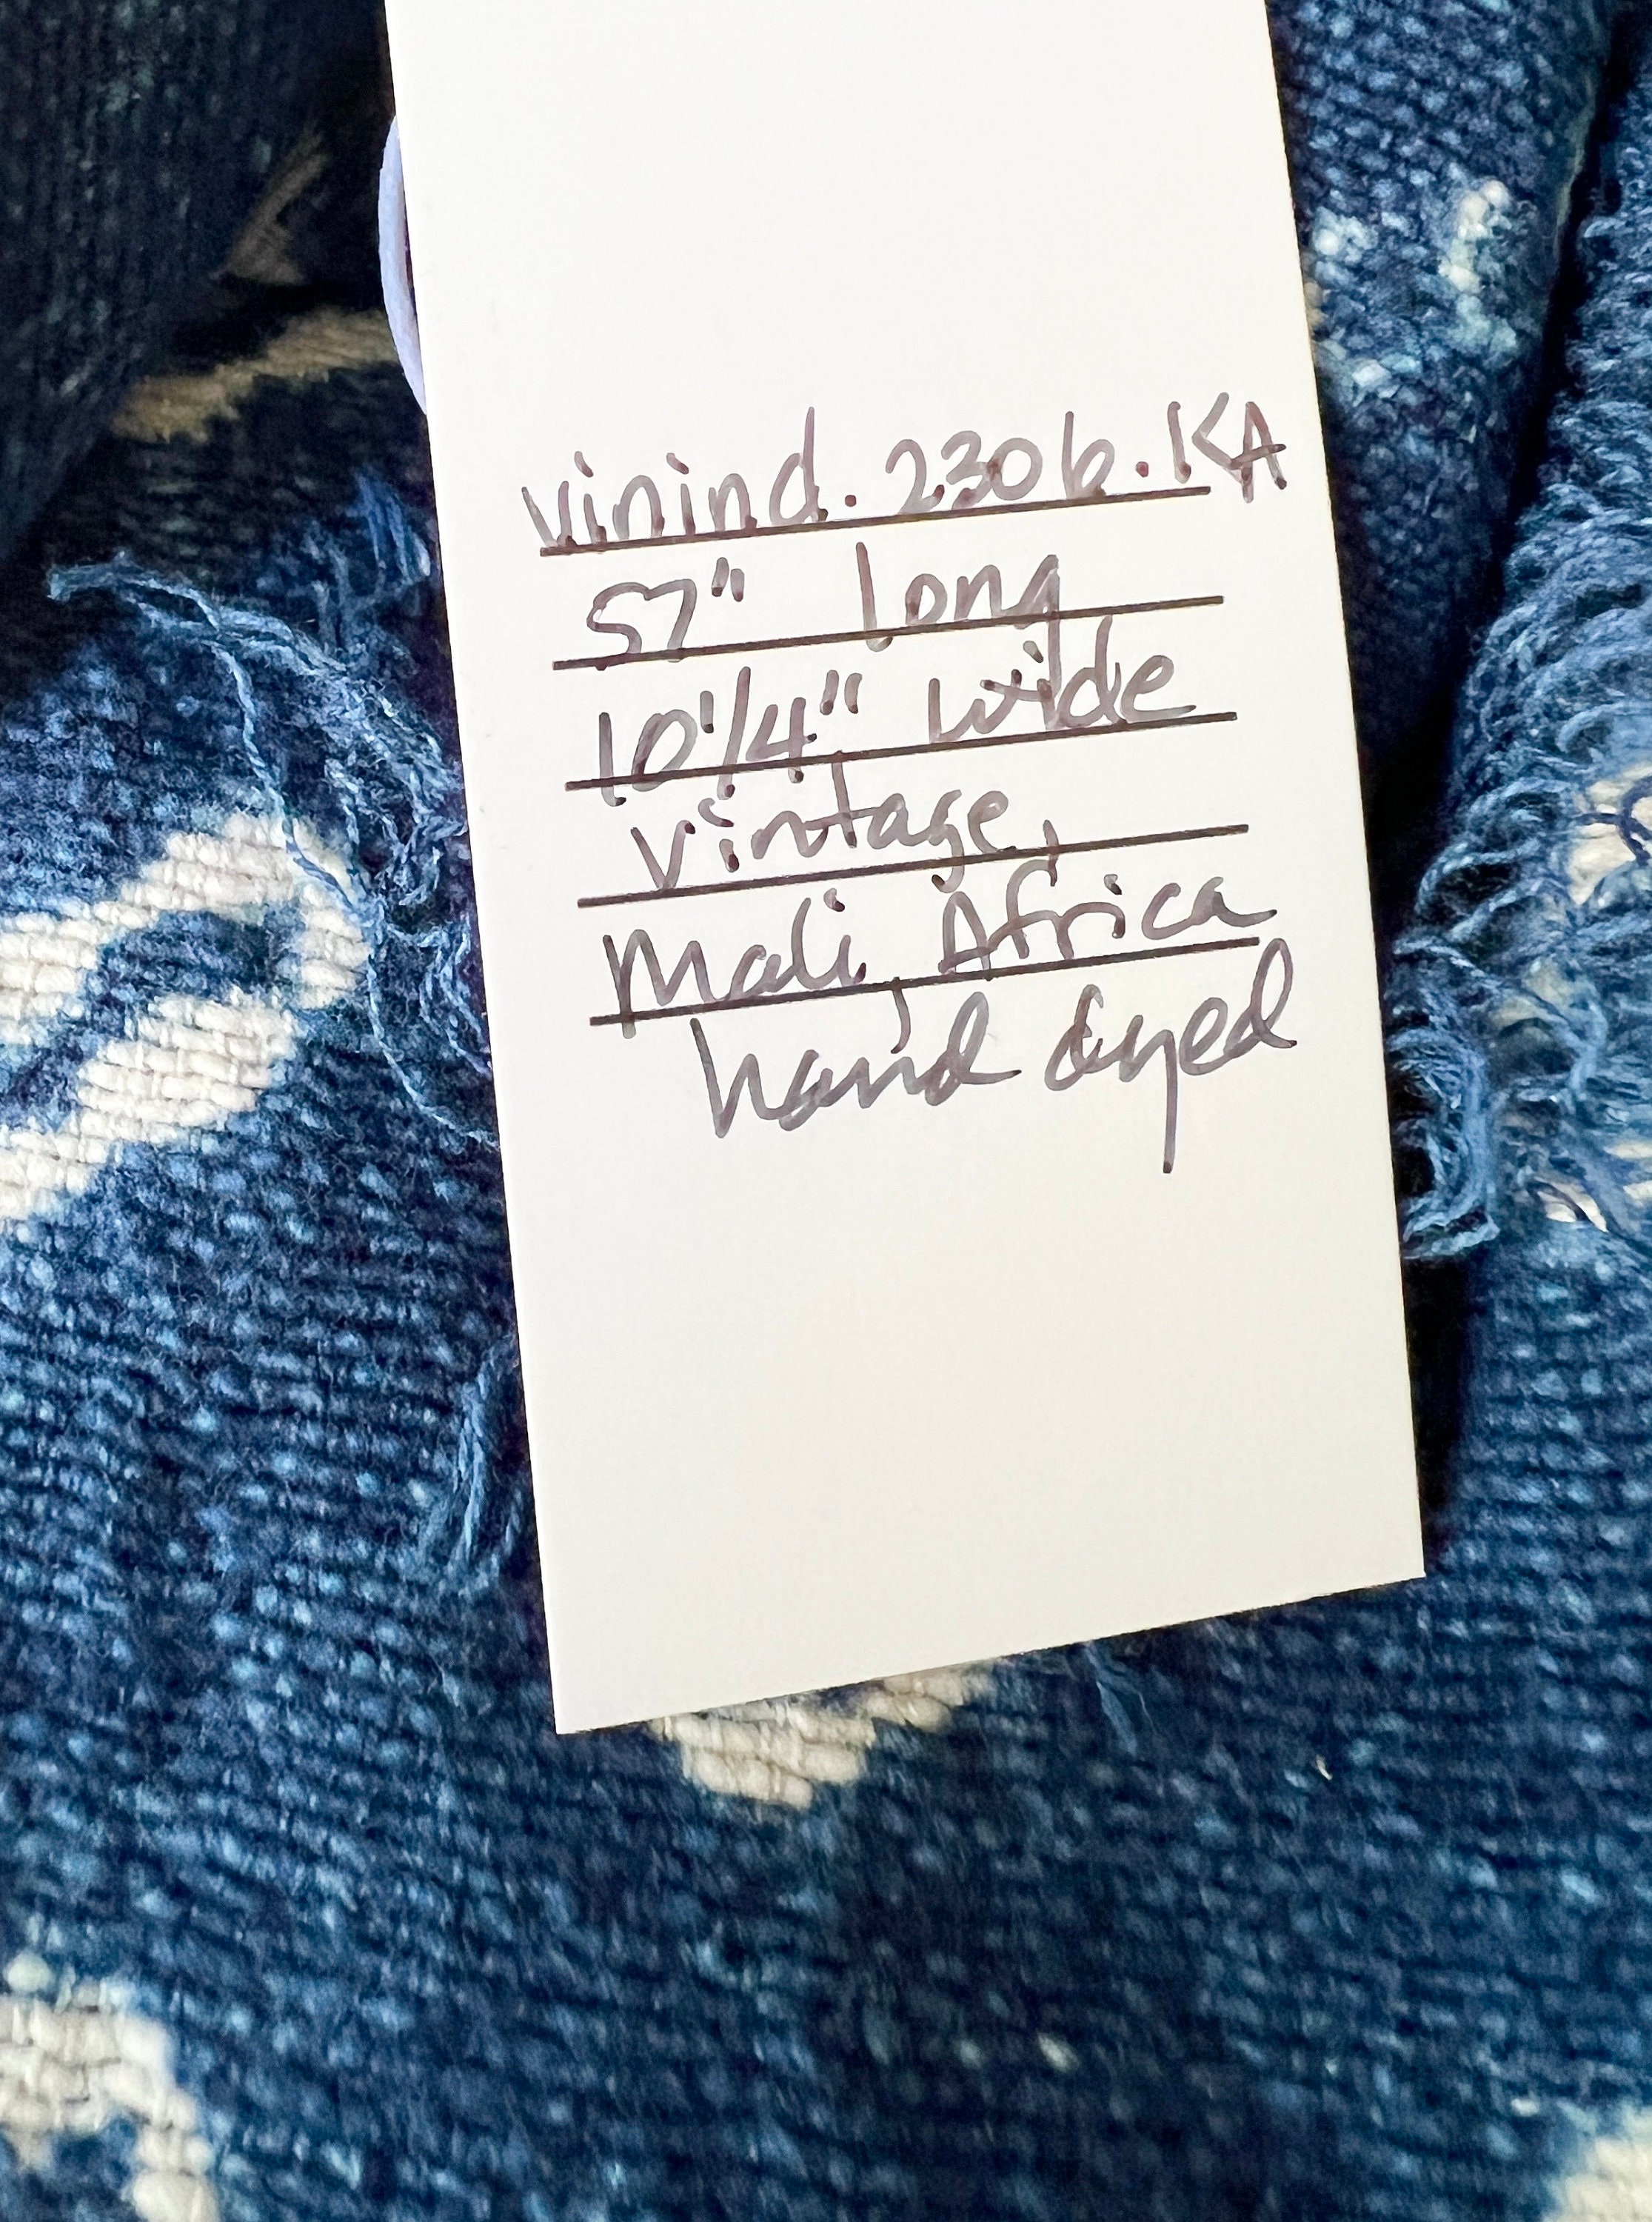 vinind.2306.KA
57" long
10 1/4" wide
vintage,
Mali, Africa
hand dyed